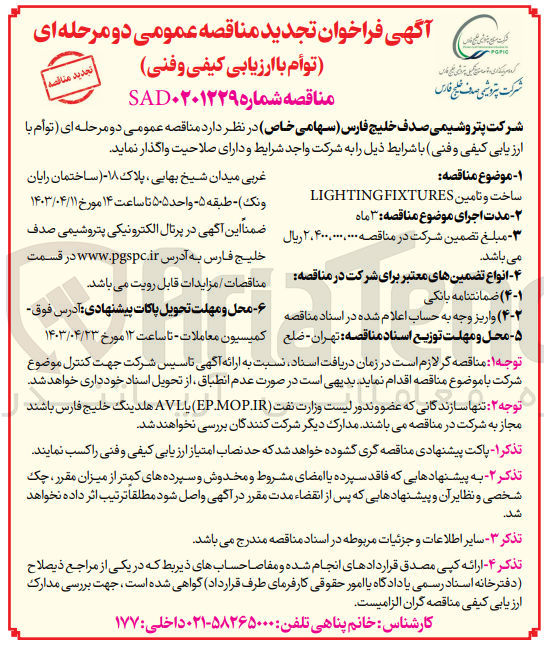 آگهی فراخوان تجدید مناقصه عمومی دو مرحله ای
(توأم با ارزیابی کیفی و فنی)
مناقصه شماره SAD۰۲۰۱۲۲۹
تجدید مناقصه
شرکت صنایع پتروشیمی خلیج فارس
PGPIC
شرکت پتروشیمی صدف خلیج فارس
شرکت پتروشیمی صدف خلیج فارس (سهامی خاص) در نظر دارد مناقصه عمومی دو مرحله ای (توأم با
ارزیابی کیفی و فنی) با شرایط ذیل را به شرکت واجد شرایط و دارای صلاحیت واگذار نماید.
۱- موضوع مناقصه:
ساخت و تامین LIGHTING FIXTURES
۲- مدت اجرای موضوع مناقصه: ۳ ماه
۳- مبلغ تضمین شرکت در مناقصه ۲،۴۰۰،۰۰۰،۰۰۰ ریال
می باشد.
۴- انواع تضمین های معتبر برای شرکت در مناقصه:
۴-۱) ضمانتنامه بانکی
۴-۲) واریز وجه به حساب اعلام شده در اسناد مناقصه
۵- محل و مهلت توزیع اسناد مناقصه: تهران - ضلع
غربی میدان شیخ بهایی ، پلاک ۱۸- (ساختمان رایان
ونک) - طبقه ۵- واحد ۵۰۵ تا ساعت ۱۴ مورخ ۱۴۰۳/۰۴/۱۱
ضمناً این آگهی در پرتال الکترونیکی پتروشیمی صدف
خلیج فارس به آدرس www.pgspc.ir در قسمت
مناقصات/مزایدات قابل رویت می باشد.
۶- محل و مهلت تحویل پاکات پیشنهادی: آدرس فوق-
کمیسیون معاملات - تا ساعت ۱۲ مورخ ۱۴۰۳/۰۴/۲۳
توجه۱: مناقصه گر لازم است در زمان دریافت اسناد، نسبت به ارائه آگهی تاسیس شرکت جهت کنترل موضوع
شرکت با موضوع مناقصه اقدام نماید. بدیهی است در صورت عدم انطباق ، از تحویل اسناد خودداری خواهد شد.
توجه۲: تنها سازندگانی که عضو وندور لیست وزارت نفت (EP.MOP.IR) یا AVL هلدینگ خلیج فارس باشند
مجاز به شرکت در مناقصه می باشند. مدارک دیگر شرکت کنندگان بررسی نخواهند شد.
تذکر ۱- پاکت پیشنهادی مناقصه گری گشوده خواهد شد که حد نصاب امتیاز ارزیابی کیفی و فنی را کسب نمایند.
تذکر ۲- به پیشنهادهایی که فاقد سپرده یا امضای مشروط و مخدوش و سپرده های کمتر از میزان مقرر ، چک
شخصی و نظایر آن و پیشنهادهایی که پس از انقضاء مدت مقرر در آگهی واصل شود مطلقاً ترتیب اثر داده نخواهد
شد.
تذکر ۳- سایر اطلاعات و جزئیات مربوطه در اسناد مناقصه مندرج می باشد.
تذکر ۴- ارائه کپی مصدق قراردادهای انجام شده و مفاصاحساب های ذیربط که در یکی از مراجع ذیصلاح
(دفترخانه اسناد رسمی یا دادگاه یا امور حقوقی کارفرمای طرف قرارداد) گواهی شده است ، جهت بررسی مدارک
ارزیابی کیفی مناقصه گران الزامیست.
کارشناس : خانم پناهی تلفن : ۵۸۲۶۵۰۰۰-۰۲۱ داخلی : ۱۷۷